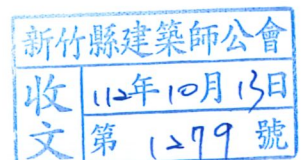 新竹縣建築師公會
收文
112年10月13日
第 1279 號